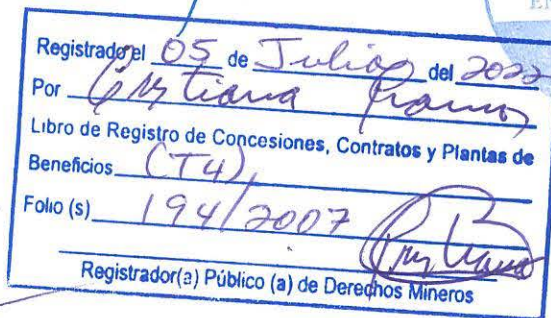 EN
Registrado el 05 de Julio del 2022
Por Cristiana
Libro de Registro de Concesiones, Contratos y Plantas de
Beneficios (T4)
Folio (s) 194/2007
Registrador(a) Público (a) de Derechos Mineros